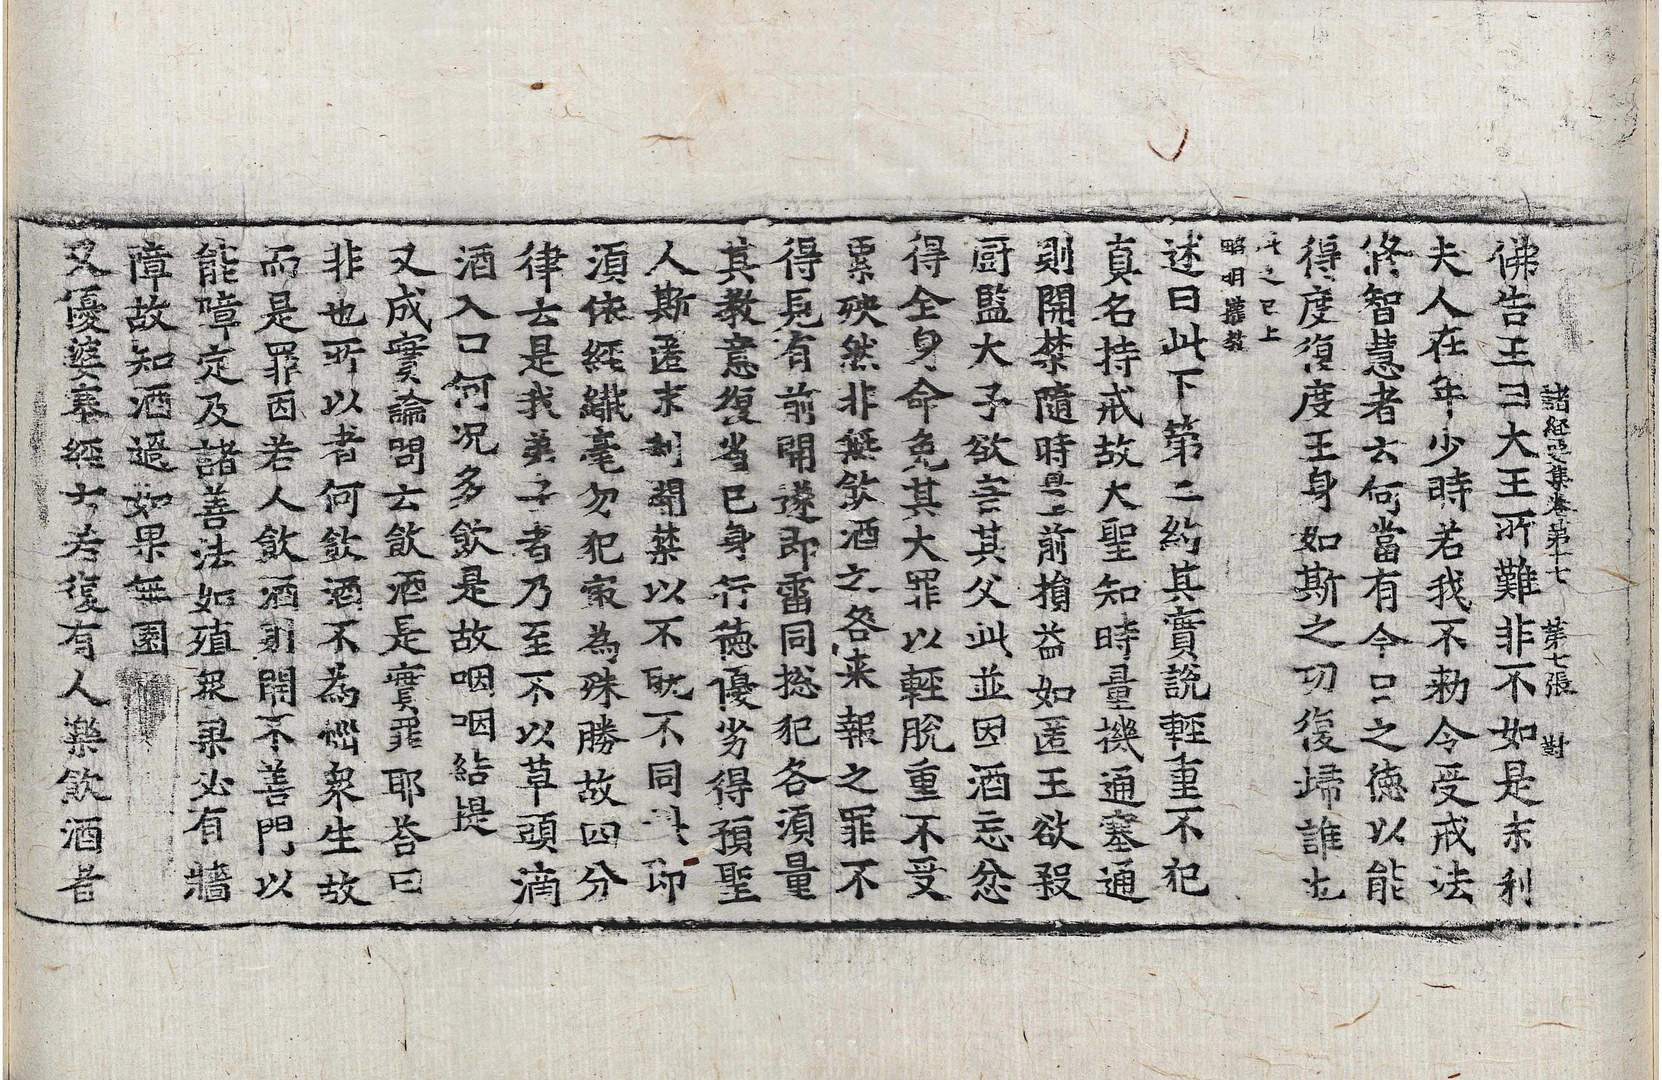 諸經要集卷第十七 第七張 對
佛告王曰大王所難非不如是末利
夫人在年少時若我不勅令受戒法
終智慧者云何當有今日之德以能
得度復度王身如斯之功復歸誰也
此之已上
略明舊教
述曰此下第二約其實說輕重不犯
真名持戒故大聖知時量機通塞通
則開禁隨時是前損益如匿王欲殺
厨監大子欲害其父此並因酒忘忿
得全身命免其大罪以輕脫重不受
累殃然非無飲酒之咎来報之罪不
得見有前開遂即雷同揔犯各湏量
其教意復省已身行德優劣得預聖
人斯匿末利開禁以不耽不同 即
湏依經纖毫勿犯寔為殊勝故四分
律去是我弟子者乃至不以草頭滴
酒入口何况多飲是故咽咽結提
又成實論問云飲酒是實罪耶荅曰
非也所以者何飲酒不為惱衆生故
而是罪因若人飲酒則開不善門以
能障定及諸善法如殖衆果必有牆
障故知酒過如果無園
又優婆塞經云若復有人樂飲酒者